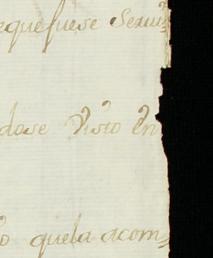 equefuese Serui
dose Visto en
o quela acom,